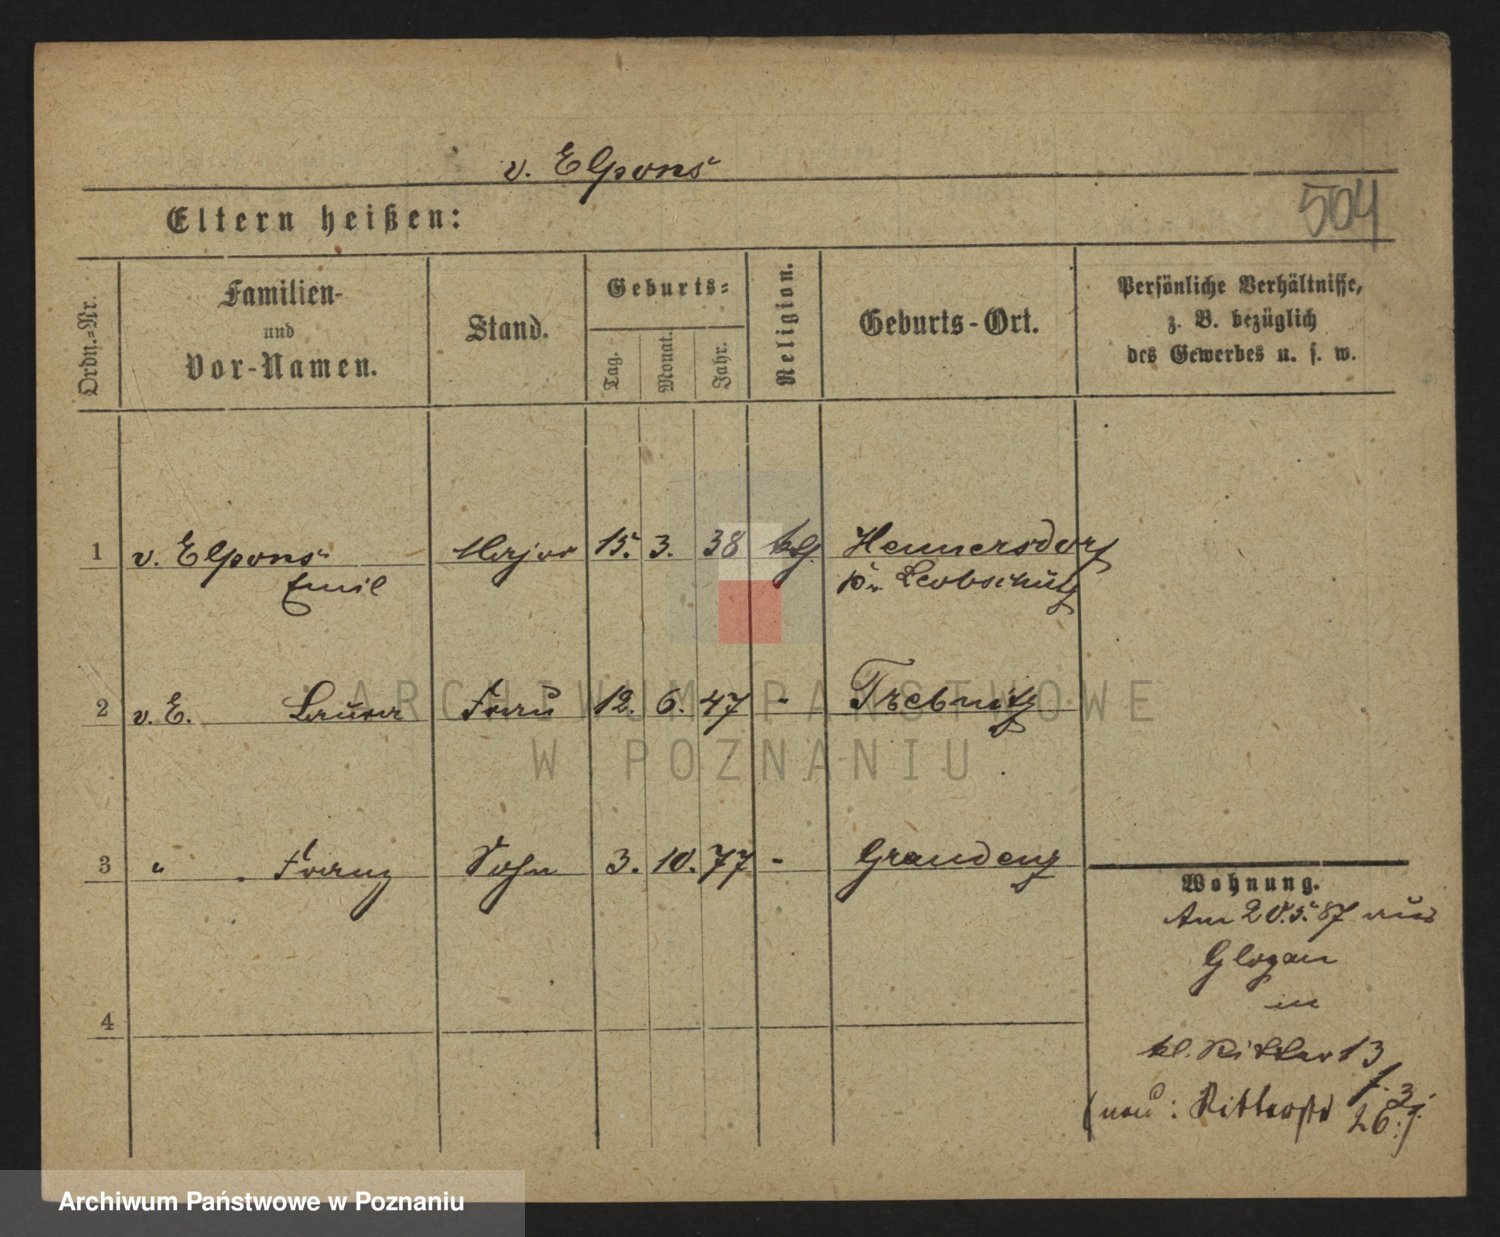 v. Elpons
504
Eltern heißen:
Ordn.-Nr.
Familien-
und
Vor-Namen.
Stand.
Geburts-
Tag.
Monat.
Jahr.
Religion.
Geburts-Ort.
Persönliche Verhältnisse,
z. B. bezüglich
des Gewerbes u. s. w.
1 v. Elpons Major 15. 3. 38 Hennersdorf
Emil Leobschütz
2 v. E. Laura Frau 12. 6. 47 - Trebnitz
3 " " Franz Sohn 3. 10. 77 - Graudenz
4
Wohnung.
Am 20.5.87 aus
Glogau
in
kl. Ritter 13
(neu: Ritterstr
ARCHIWUM PAŃSTWOWE
W POZNANIU
Archiwum Państwowe w Poznaniu